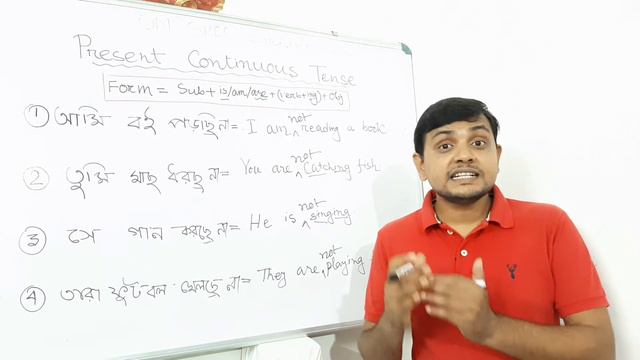 Present Continuous Tense
Form = Sub + is/am/are + (verb+ing) + obj
① আমি বই পড়ছি না = I am not reading a book
② তুমি মাছ ধরছ না = You are not catching fish
③ সে গান করছে না = He is not singing
④ তারা ফুটবল খেলছে না = They are not playing